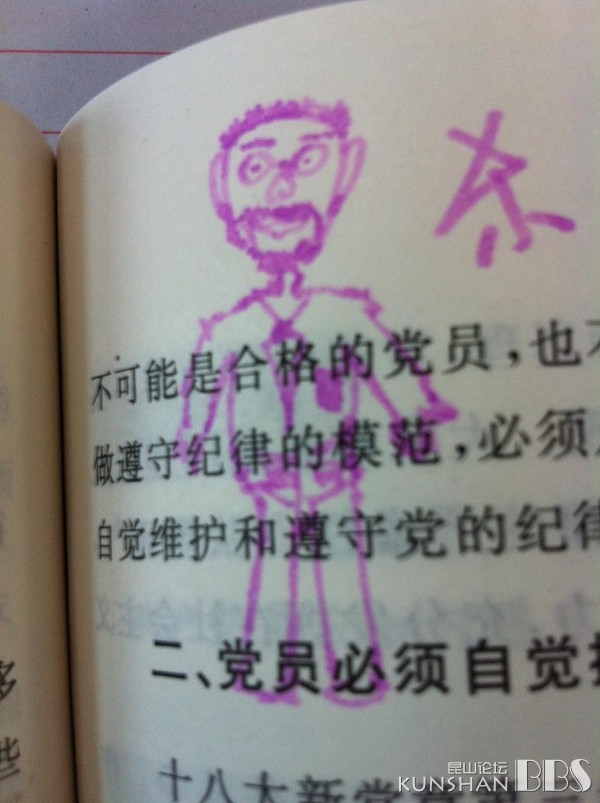 多
些
不可能是合格的党员，也不
做遵守纪律的模范，必须
自觉维护和遵守党的纪律
二、党员必须自觉
十八大新党章
昆山论坛
KUNSHAN BBS